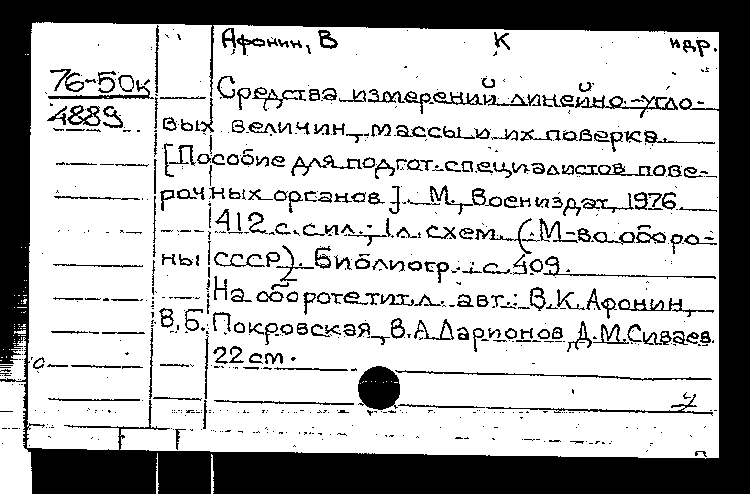 Афонин, В К и др.
76-50к
4889
Средства измерений линейно-угло-
вых величин, массы и их поверка.
[Пособие для подгот. специалистов пове-
рочных органов]. М., Воениздат, 1976.
412 с. с ил.; 1 л. схем. (М-во оборо-
ны СССР). Библиогр.: с. 409.
На обороте тит. л. авт.: В.К. Афонин,
В.Б. Покровская, В.А. Ларионов, Д.М. Сиваев.
22 см.